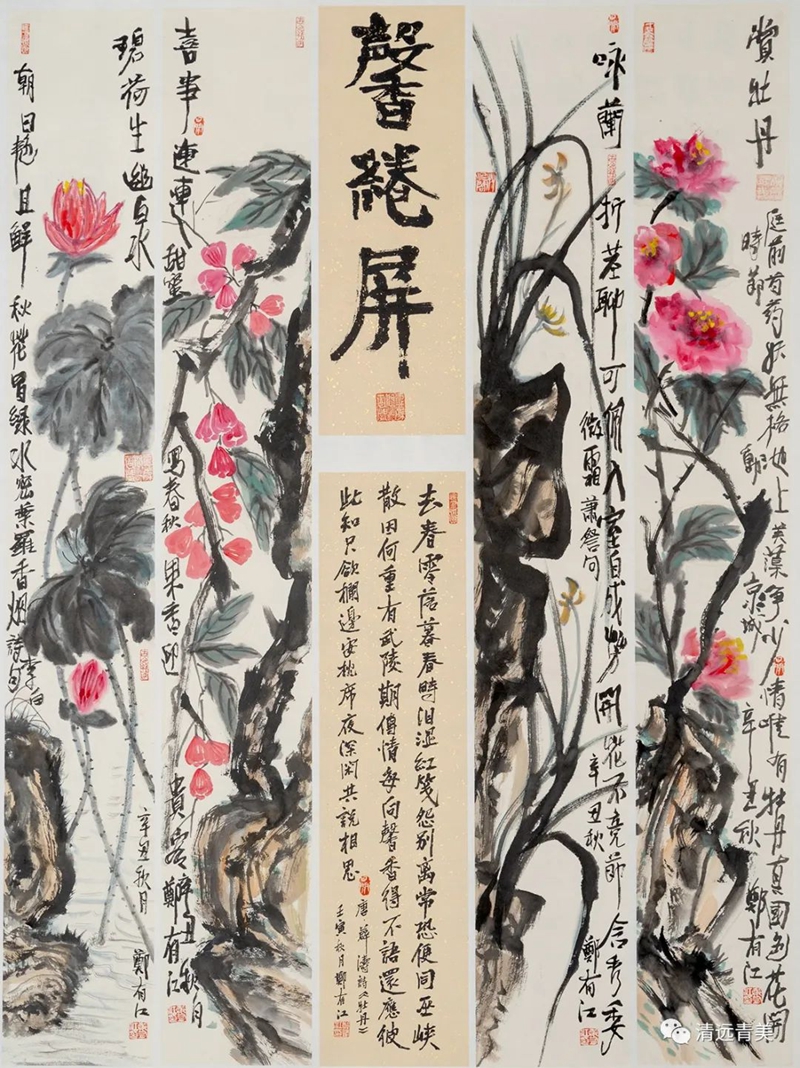 賞牡丹
庭前芍药妖無格池上芙蕖净少情唯有牡丹真國色花開
時節動京城 辛丑秋 鄭有江
詠蘭 折莖聊可佩入室自成芳開花不競節含秀委
微霜 蕭詧句 辛丑秋 鄭有江
馨綣屏
去春零落暮春時泪濕红箋怨别離常恐便同巫峡
散因何重有武陵期傳情每向馨香得不語還應彼
此知只欲欄邊安枕席夜深闲共説相思
唐薛濤詩《牡丹》
壬寅秋月鄭有江
喜事連連甜蜜
寫春秋果香迎
貴客 辛丑秋月
鄭有江
碧荷生幽泉
朝日艳且鮮秋花冒绿水密葉羅青烟 詩句李白
辛丑秋月 鄭有江
清远青美